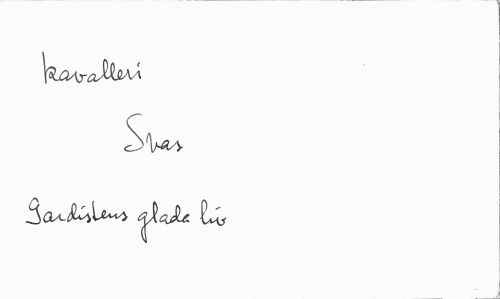 kavalleri
Svas
Gardistens glada liv